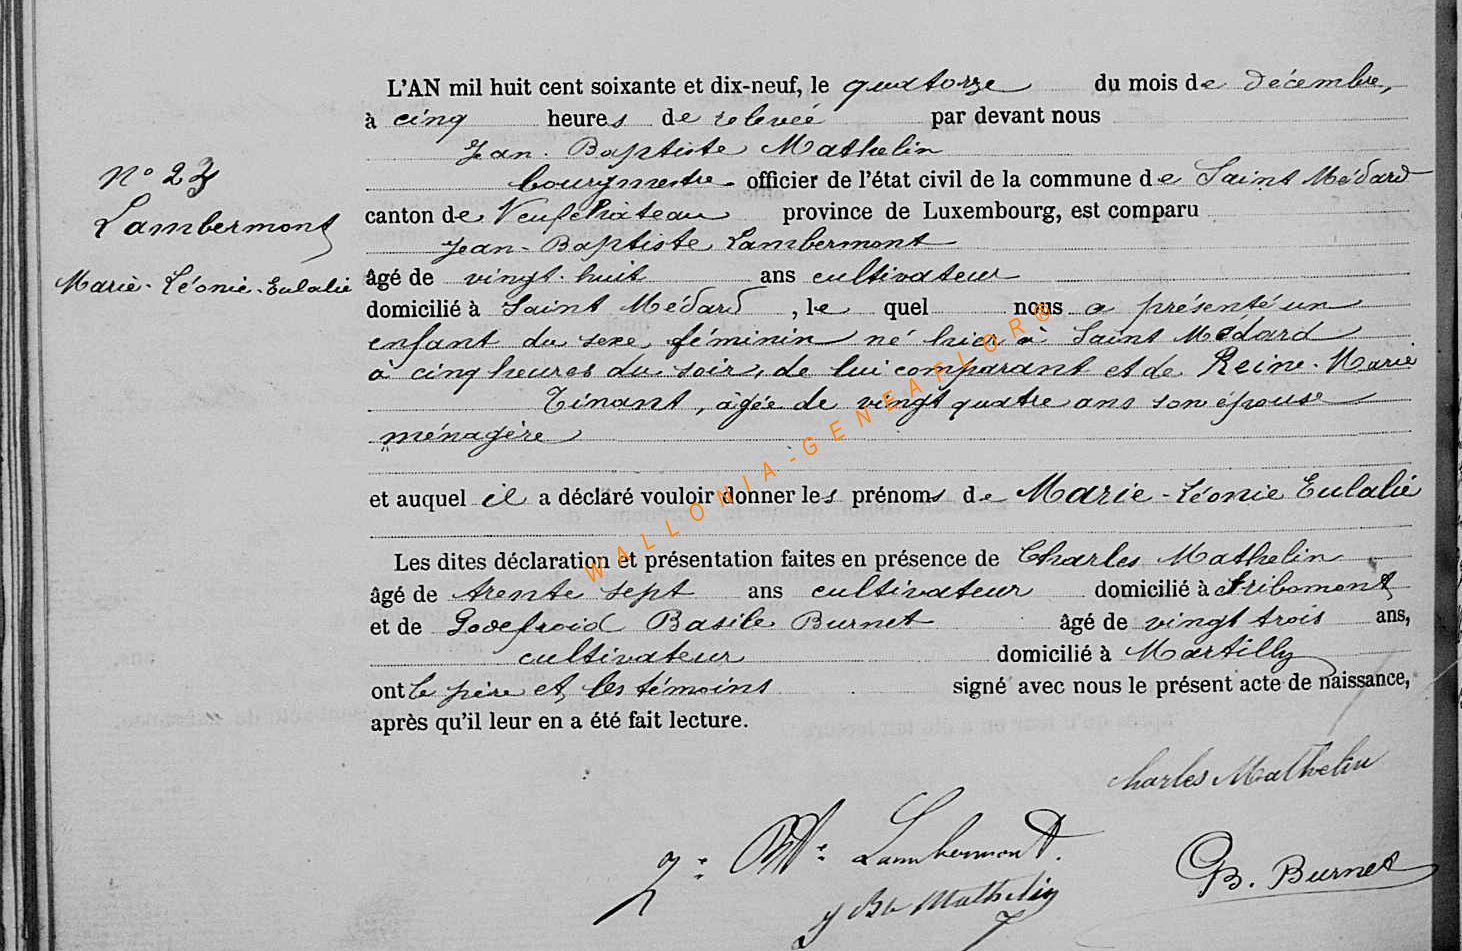 L'AN mil huit cent soixante et dix-neuf, le quatorze du mois de décembre,
à cinq heures de relevée par devant nous
Jean-Baptiste Mathelin
N° 23
bourgmestre officier de l'état civil de la commune de Saint Médard
Lambermont
canton de Neufchâteau province de Luxembourg, est comparu
Jean-Baptiste Lambermont
Marie-Léonie-Eulalie
âgé de vingt-huit ans cultivateur
domicilié à Saint Médard, le quel nous a présenté un
enfant du sexe féminin né hier à Saint Médard
à cinq heures du soir, de lui comparant et de Reine-Marie
Tinant, âgée de vingt quatre ans son épouse
ménagère
et auquel il a déclaré vouloir donner les prénoms de Marie-Léonie Eulalie
Les dites déclaration et présentation faites en présence de Charles Mathelin
âgé de trente sept ans cultivateur domicilié à Tribomont
et de Godefroid Basile Burnet âgé de vingt trois ans,
cultivateur domicilié à Martilly
ont le père et les témoins signé avec nous le présent acte de naissance,
après qu'il leur en a été fait lecture.
Charles Mathelin
J: Bte: Lambermont.
G B. Burnet
J Bte Mathelin
WALLONIA-GENEAFLOR®